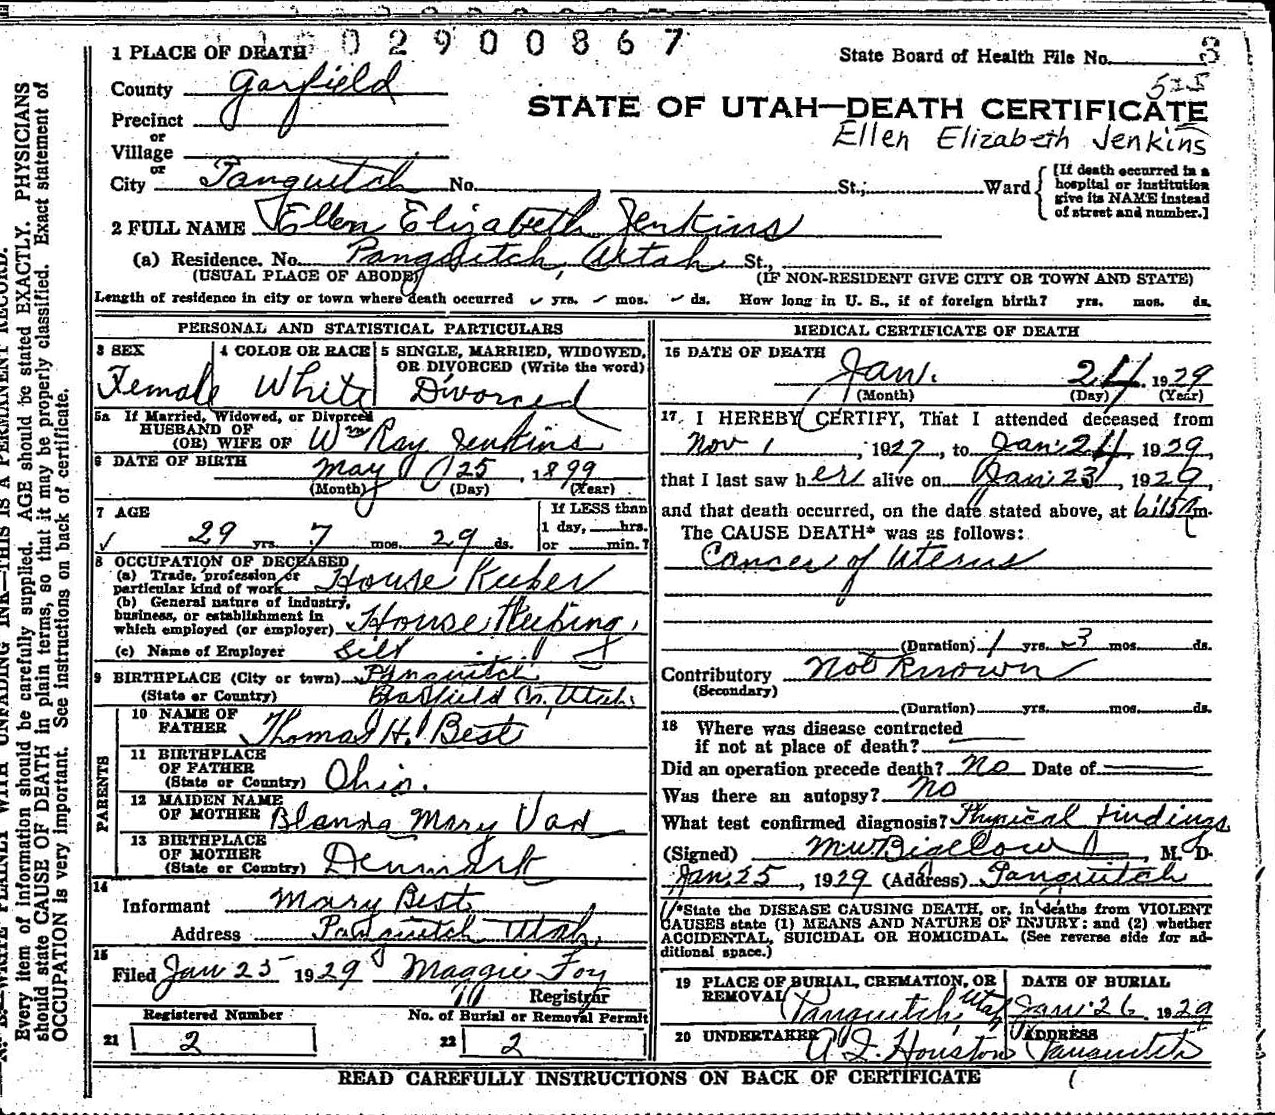 02900867
1 PLACE OF DEATH
State Board of Health File No. 3
County Garfield
525
STATE OF UTAH—DEATH CERTIFICATE
Precinct
or
Ellen Elizabeth Jenkins
Village
or
City Panguitch No. St.; Ward
[If death occurred in a hospital or institution give its NAME instead of street and number.]
2 FULL NAME Ellen Elizabeth Jenkins
(a) Residence. No. Panguitch, Utah St.,
(USUAL PLACE OF ABODE) (IF NON-RESIDENT GIVE CITY OR TOWN AND STATE)
Length of residence in city or town where death occurred yrs. mos. ds. How long in U. S., if of foreign birth? yrs. mos. ds.
PERSONAL AND STATISTICAL PARTICULARS
3 SEX
Female
4 COLOR OR RACE
White
5 SINGLE, MARRIED, WIDOWED,
OR DIVORCED (Write the word)
Divorced
5a If Married, Widowed, or Divorced
HUSBAND OF
(OR) WIFE OF Wm Ray Jenkins
6 DATE OF BIRTH May 25, 1899
(Month) (Day) (Year)
7 AGE
29 yrs. 7 mos. 29 ds.
If LESS than
1 day, hrs.
or min.?
8 OCCUPATION OF DECEASED
(a) Trade, profession or
particular kind of work House Keeper
(b) General nature of industry,
business, or establishment in
which employed (or employer) House Keeping
(c) Name of Employer Self
9 BIRTHPLACE (City or town) Panguitch
(State or Country) Garfield Co, Utah.
PARENTS
10 NAME OF
FATHER Thomas H. Best
11 BIRTHPLACE
OF FATHER
(State or Country) Ohio.
12 MAIDEN NAME
OF MOTHER Mary
13 BIRTHPLACE
OF MOTHER
(State or Country) Denmark
14
Informant Mary Best
Address Panguitch Utah,
15
Filed Jan 25 1929 Maggie Foy
Registrar
Registered Number No. of Burial or Removal Permit
21 2 22 2
MEDICAL CERTIFICATE OF DEATH
16 DATE OF DEATH
Jan. 24 1929
(Month) (Day) (Year)
17 I HEREBY CERTIFY, That I attended deceased from
Nov 1, 1927, to Jan 24, 1929,
that I last saw her alive on Jan 23, 1929,
and that death occurred, on the date stated above, at 6:15 A m.
The CAUSE DEATH* was as follows:
Cancer of Uterus
(Duration) 1 yrs. 3 mos. ds.
Contributory Not Known
(Secondary)
(Duration) yrs. mos. ds.
18 Where was disease contracted
if not at place of death?
Did an operation precede death? No Date of
Was there an autopsy? No
What test confirmed diagnosis? Physical findings
(Signed) M W Bigelow M. D.
Jan 25, 1929 (Address) Panguitch
*State the DISEASE CAUSING DEATH, or, in deaths from VIOLENT
CAUSES state (1) MEANS AND NATURE OF INJURY: and (2) whether
ACCIDENTAL, SUICIDAL OR HOMICIDAL. (See reverse side for ad-
ditional space.)
19 PLACE OF BURIAL, CREMATION, OR
REMOVAL Panguitch, Utah
DATE OF BURIAL
Jan 26 1929
20 UNDERTAKER Houston
ADDRESS
Panguitch
READ CAREFULLY INSTRUCTIONS ON BACK OF CERTIFICATE
WRITE PLAINLY WITH UNFADING INK—THIS IS A PERMANENT RECORD.
Every item of information should be carefully supplied. AGE should be stated EXACTLY. PHYSICIANS
should state CAUSE OF DEATH in plain terms, so that it may be properly classified. Exact statement of
OCCUPATION is very important. See instructions on back of certificate.